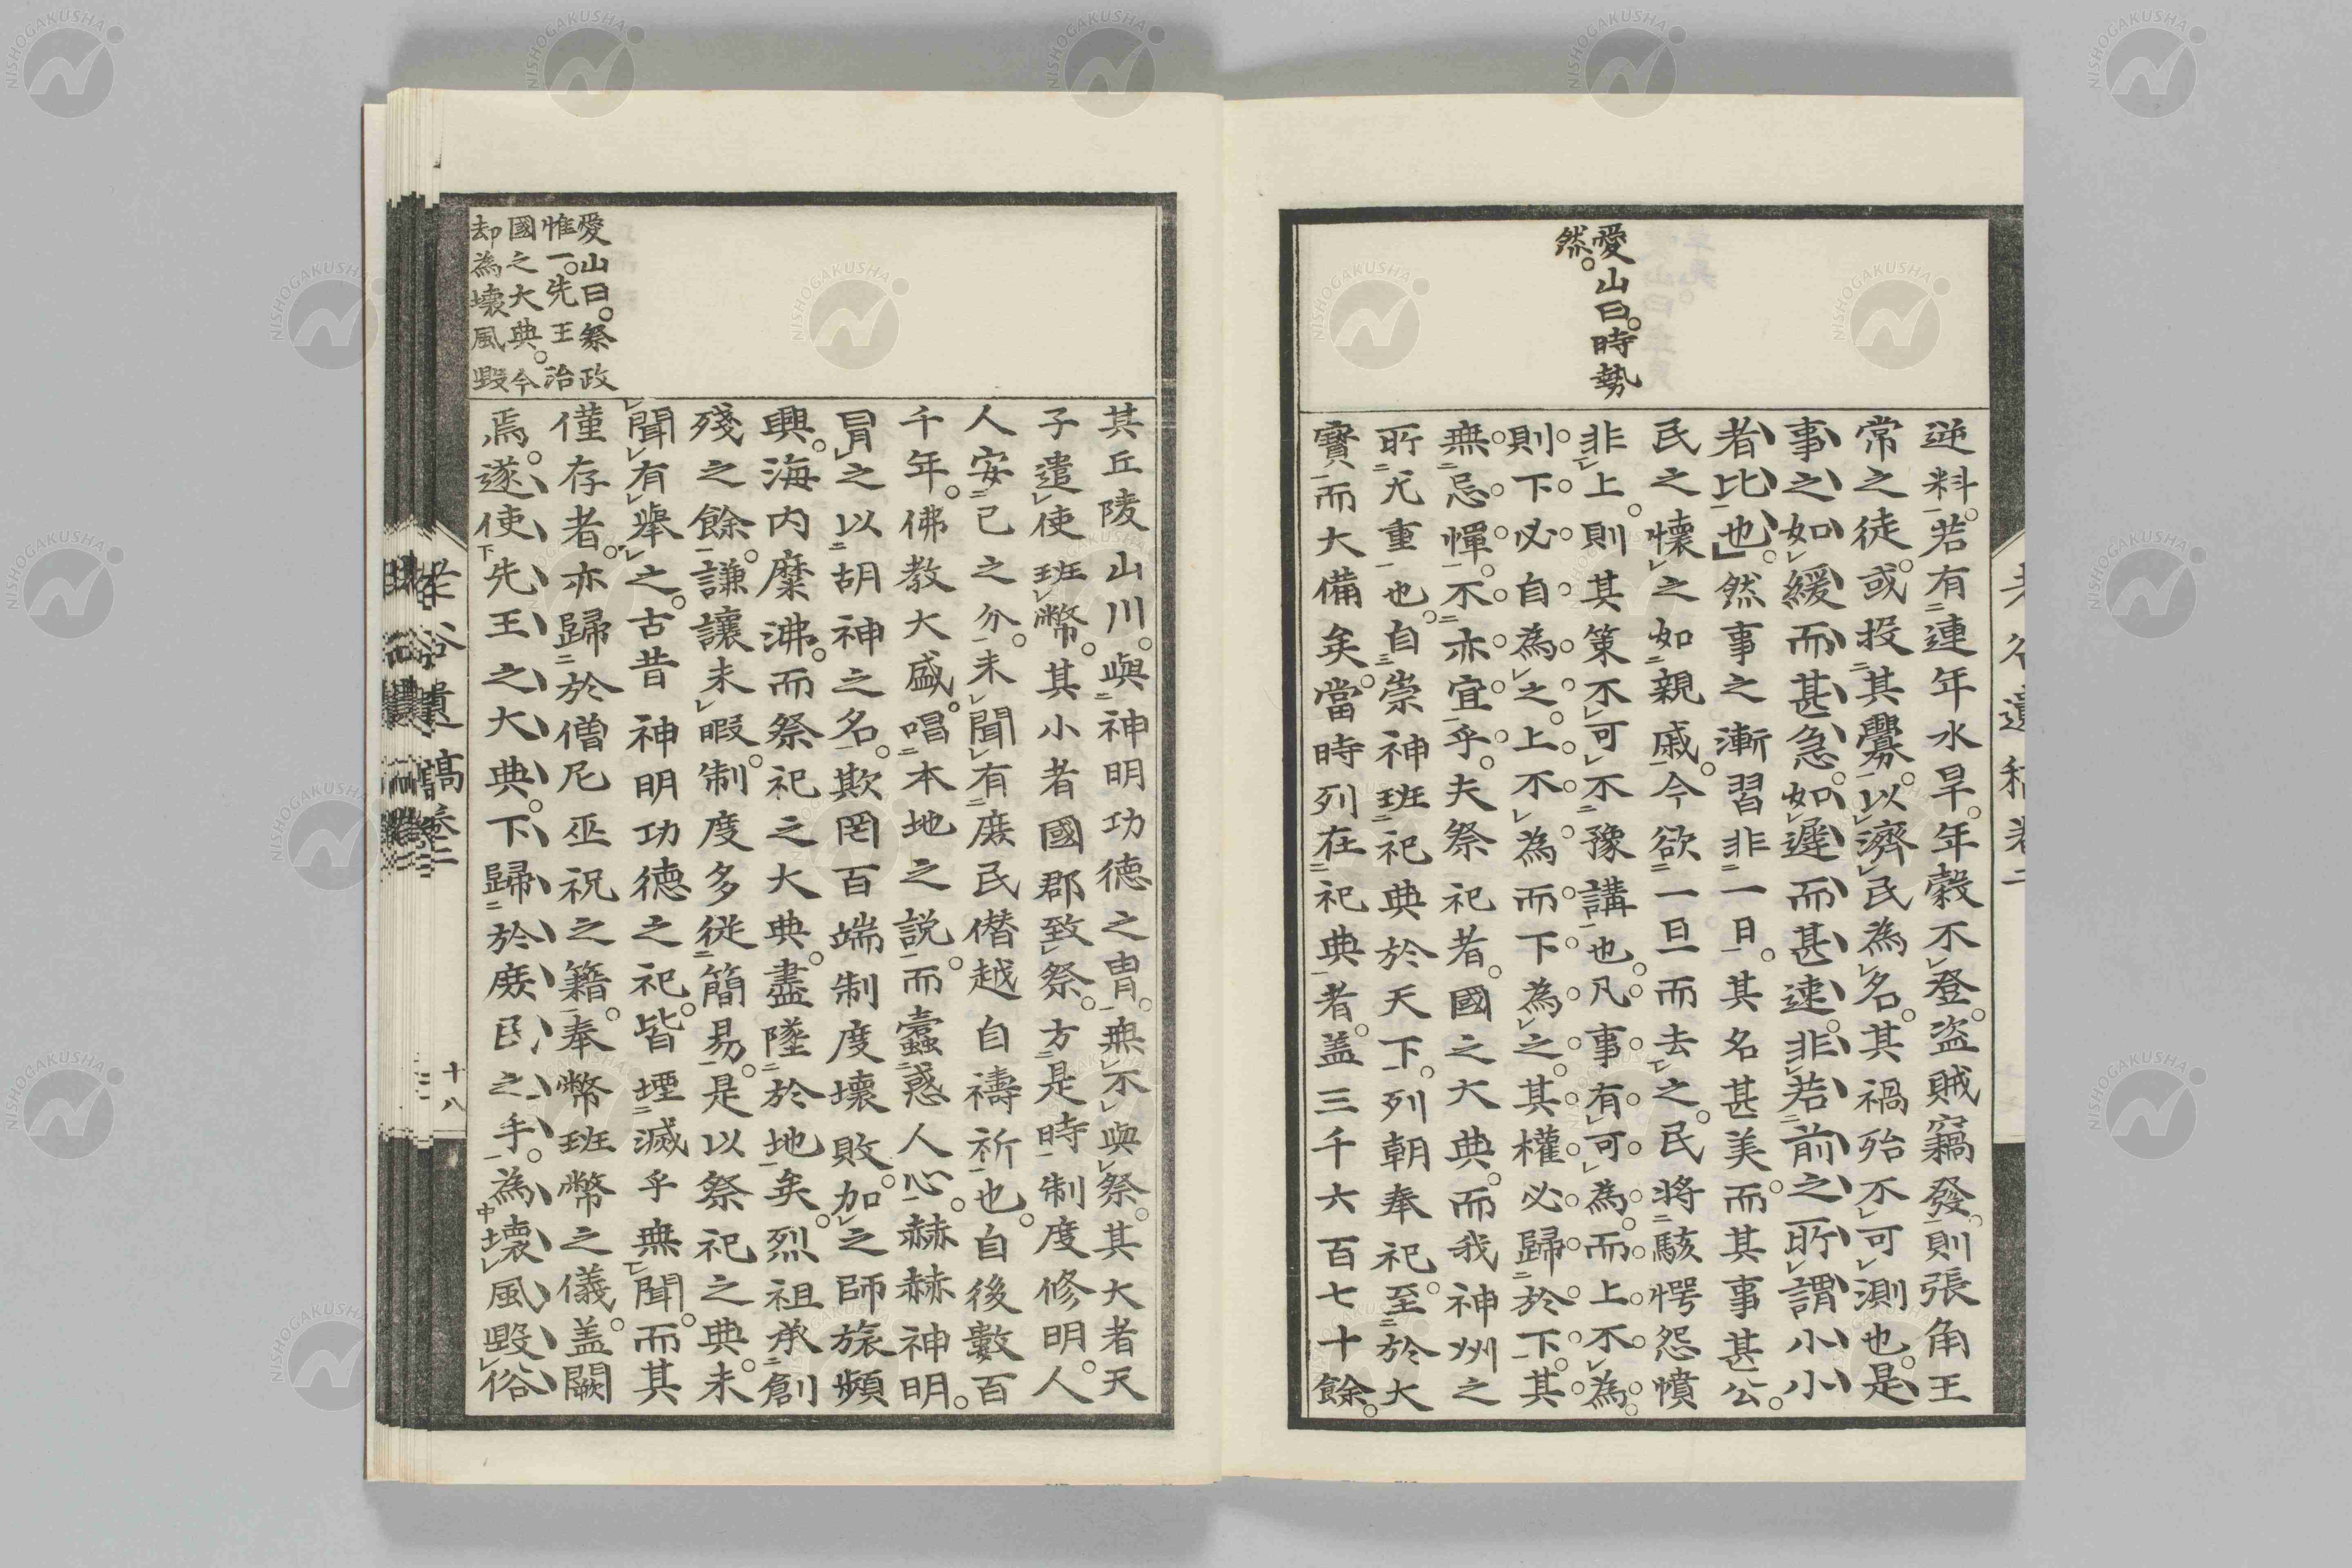 愛山曰。時勢
然。
逆料。若有連年水旱。年穀不登。盗賊竊發。則張角王
常之徒。或投其釁。以濟民為名。其禍殆不可測也。是
事之如緩而甚急。如遲而甚速。非若前之所謂小小
者比也。然事之漸習非一日。其名甚美而其事甚公。
民之懷之如親戚。今欲一旦而去之。民将駭愕怨憤
非上。則其策不可不豫講也。凡事有可為。而上不為。
則下必自為之。上不為而下為之。其權必歸於下。其
無忌憚。不亦宜乎。夫祭祀者。國之大典。而我神州之
所尤重也。自崇神班祀典於天下。列朝奉祀。至於大
寳而大備矣。當時列在祀典者。盖三千六百七十餘。
其丘陵山川。與神明功德之胄。無不與祭。其大者天
子遣使班幣。其小者國郡致祭。方是時制度修明。人
人安己之分。未聞有庶民僭越自禱祈也。自後數百
千年。佛教大盛。唱本地之説。而蠹惑人心。赫赫神明。
冐之以胡神之名。欺罔百端制度壞敗。加之師旅頻
興。海内糜沸。而祭祀之大典。盡墜於地矣。烈祖承創
殘之餘。謙讓未暇。制度多從簡易。是以祭祀之典。未
聞有舉之。古昔神明功德之祀。皆堙滅乎無聞。而其
僅存者。亦歸於僧尼巫祝之籍。奉幣班幣之儀。盖闕
焉。遂使先王之大典。下歸於庶民之手。為壞風毀俗
愛山曰。祭政
惟一。先王治
國之大典。今
却為壞風毀
遺稿卷二
十八